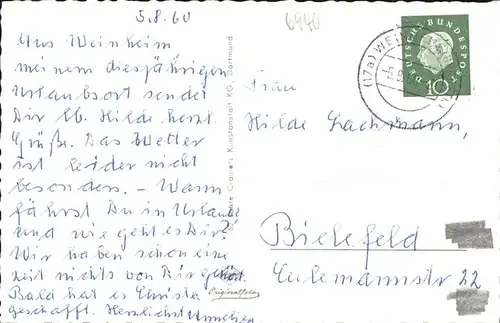 5.8.60
6940
Aus Weinheim
meinem diesjährigen
Urlaubsort sendet
Dir lb. Hilde herzl.
Grüße. Das Wetter
ist leider nicht
besonders. - Wann
fährst Du in Urlaub
und wie geht es Dir?
Wir haben schon eine
Zeit nichts von Dir gehört.
Bald hat es Christa
geschafft. Herzlichst
Cramers Kunstanstalt KG, Dortmund
Originalfoto
DEUTSCHE BUNDESPOST
10
(17a) WEINHEIM
Frau
Hilde Lachmann,
Bielefeld
Eulemannstr 22